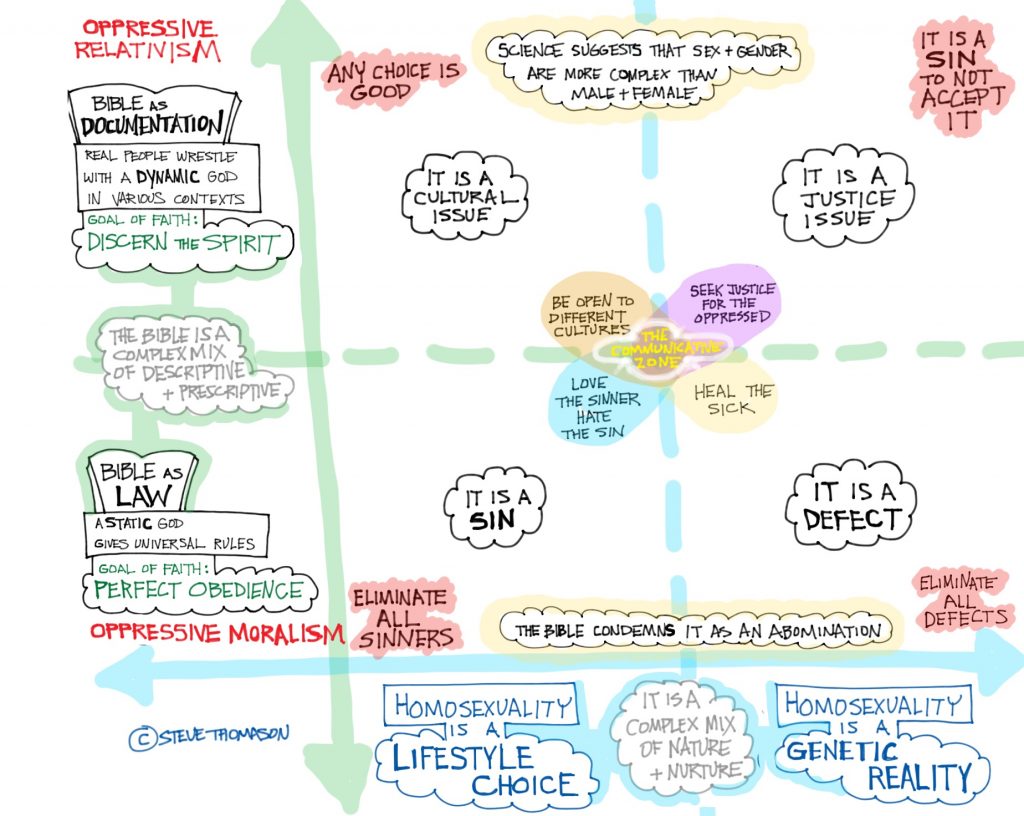 OPPRESSIVE
RELATIVISM
BIBLE AS
DOCUMENTATION
REAL PEOPLE WRESTLE
WITH A DYNAMIC GOD
IN VARIOUS CONTEXTS
GOAL OF FAITH:
DISCERN THE SPIRIT
THE BIBLE IS A
COMPLEX MIX
OF DESCRIPTIVE
+ PRESCRIPTIVE
BIBLE AS
LAW
A STATIC GOD
GIVES UNIVERSAL RULES
GOAL OF FAITH:
PERFECT OBEDIENCE
OPPRESSIVE MORALISM
ANY CHOICE IS
GOOD
SCIENCE SUGGESTS THAT SEX + GENDER
ARE MORE COMPLEX THAN
MALE + FEMALE
IT IS A
SIN
TO NOT
ACCEPT
IT
IT IS A
CULTURAL
ISSUE
IT IS A
JUSTICE
ISSUE
BE OPEN TO
DIFFERENT
CULTURES
SEEK JUSTICE
FOR THE
OPPRESSED
THE
COMMUNICATIVE
ZONE
LOVE
THE SINNER
HATE
THE SIN
HEAL THE
SICK
IT IS A
SIN
IT IS A
DEFECT
ELIMINATE
ALL
SINNERS
THE BIBLE CONDEMNS IT AS AN ABOMINATION
ELIMINATE
ALL
DEFECTS
© STEVE THOMASON
HOMOSEXUALITY
IS A
LIFESTYLE
CHOICE
IT IS A
COMPLEX MIX
OF NATURE
+ NURTURE
HOMOSEXUALITY
IS A
GENETIC
REALITY